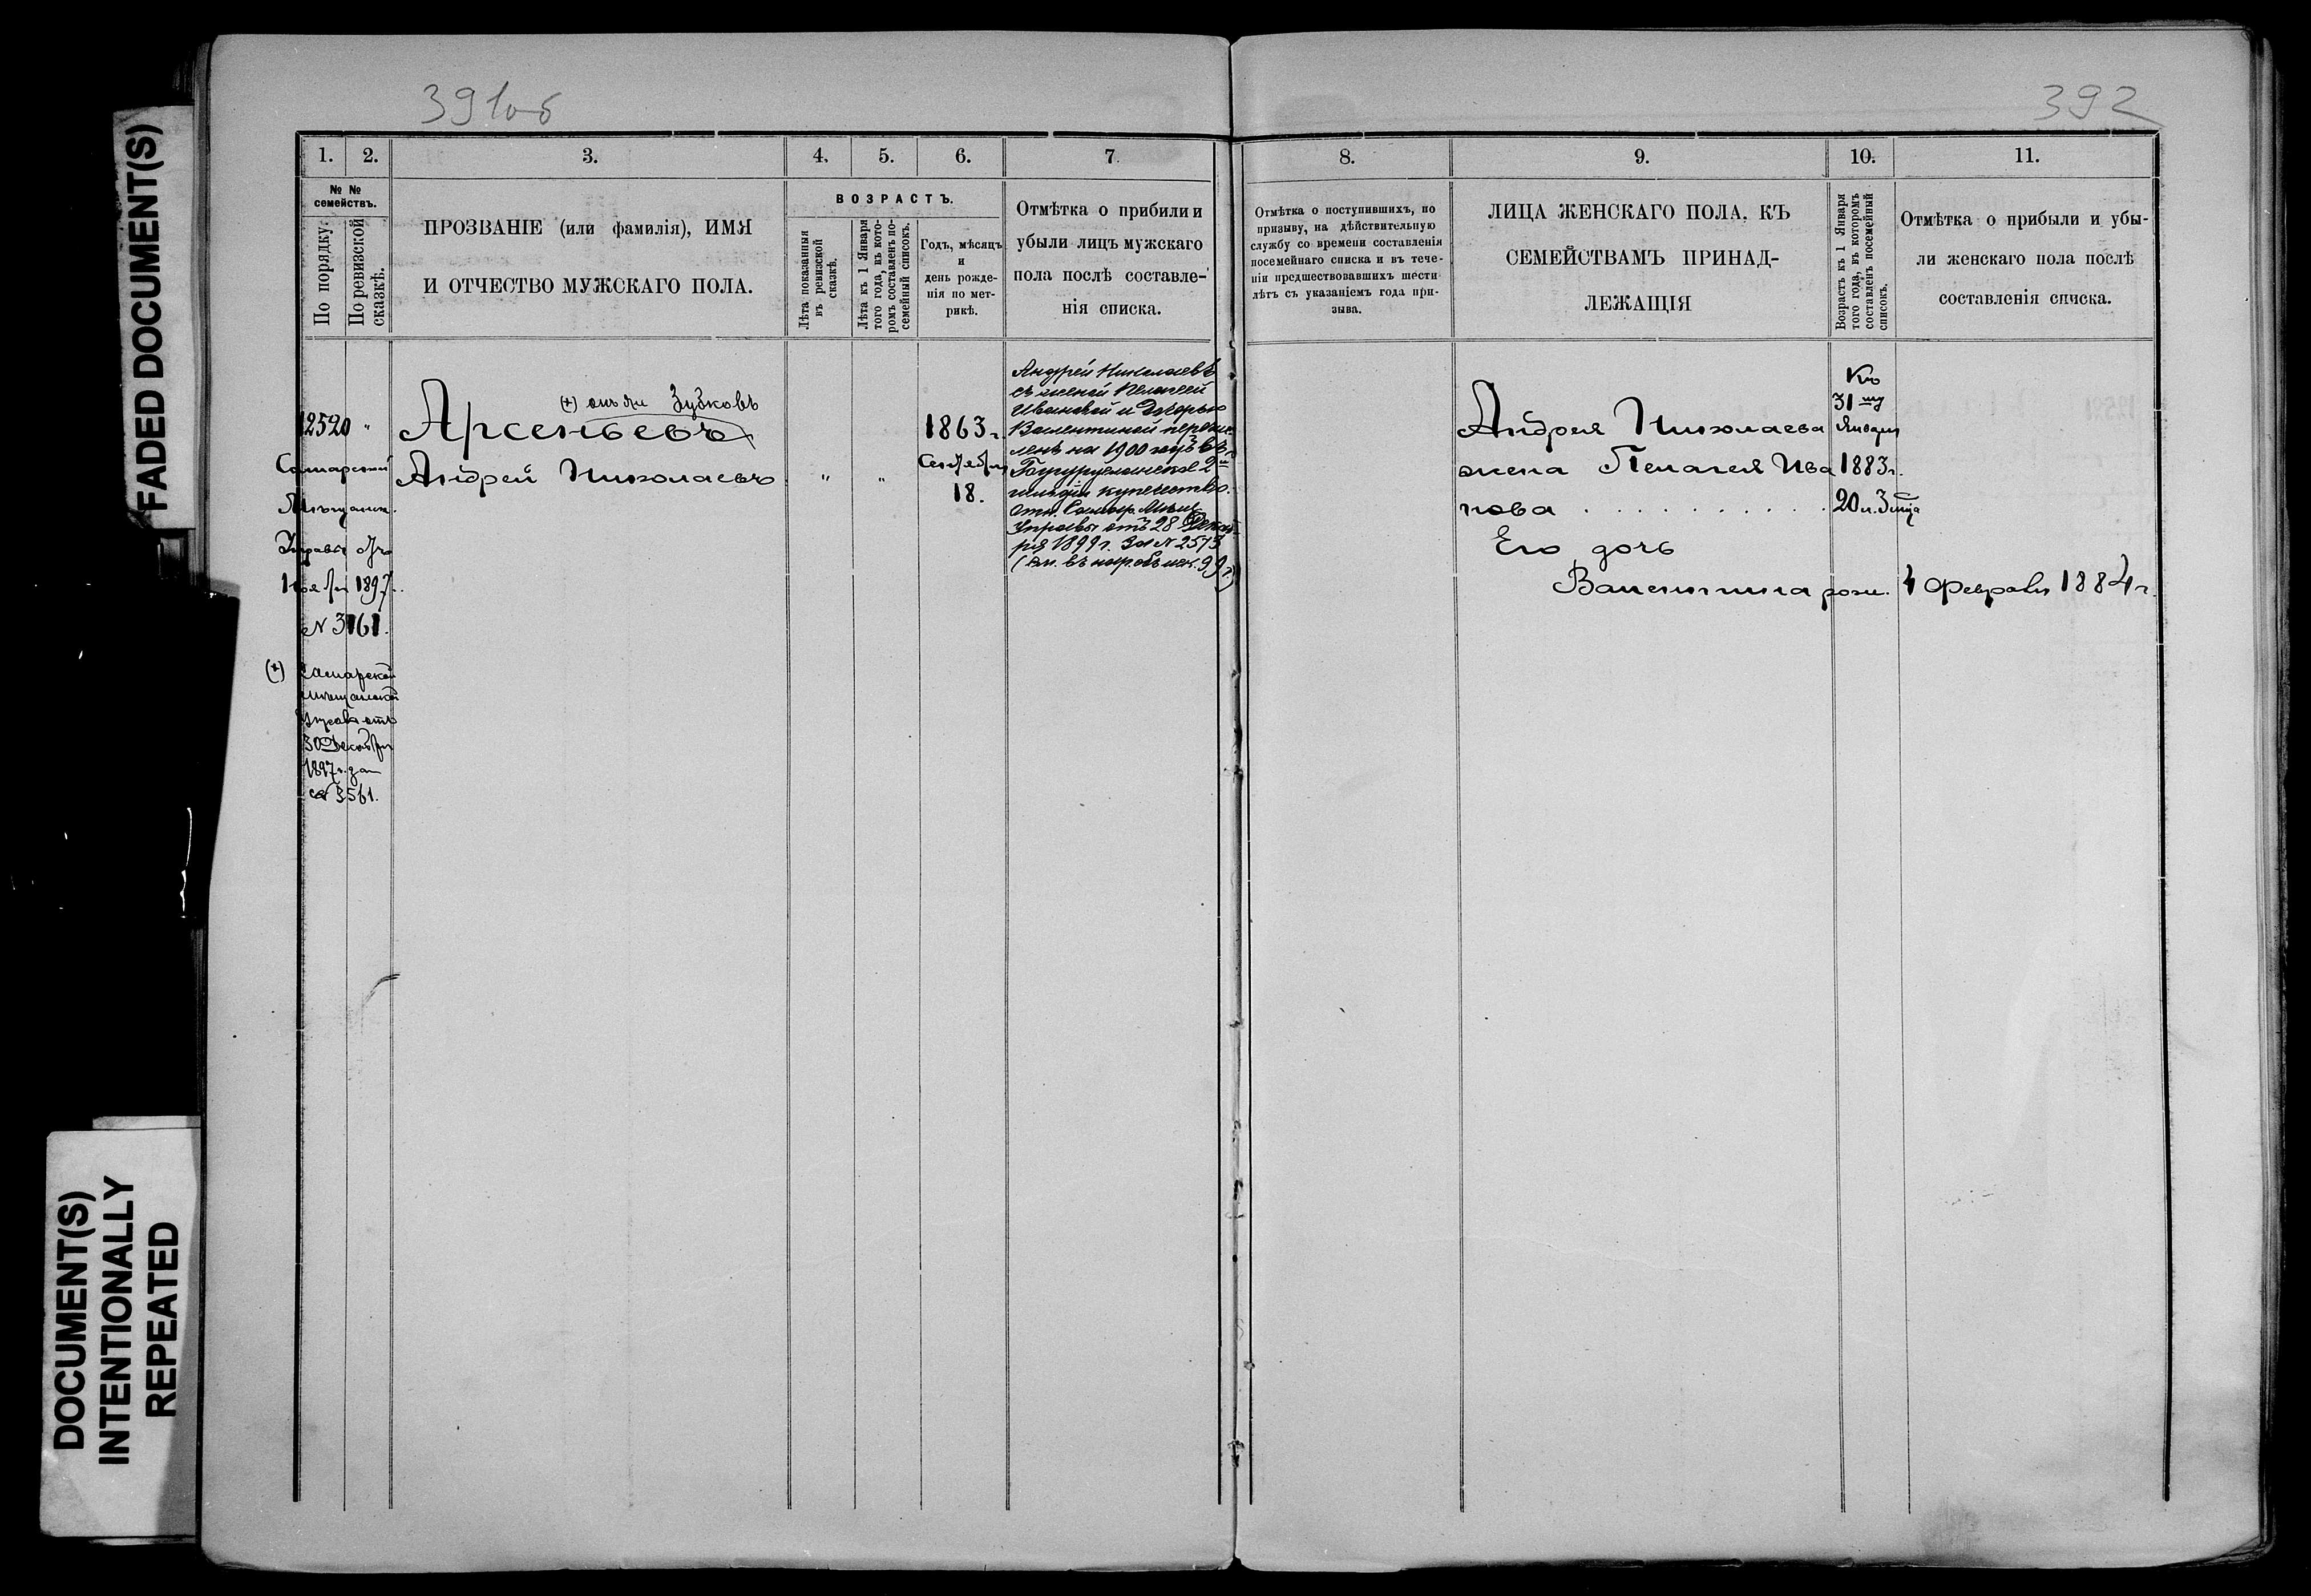 FADED DOCUMENT(S)
DOCUMENT(S)
INTENTIONALLY
REPEATED
391об
392
1.
2.
3.
4.
5.
6.
7.
№ №
семействъ.
По порядку.
По ревизской
сказкѣ.
ПРОЗВАНІЕ (или фамилія), ИМЯ
И ОТЧЕСТВО МУЖСКАГО ПОЛА.
ВОЗРАСТЪ.
Лѣта показанныя
въ ревизской
сказкѣ.
Лѣта къ 1 Января
того года, въ кото-
ромъ составленъ по-
семейный списокъ.
Годъ, мѣсяцъ
и
день рожде-
нія по мет-
рикѣ.
Отмѣтка о прибыли и
убыли лицъ мужскаго
пола послѣ составле-
нія списка.
12520 "
Самарской
Мѣщанск.
Управы отъ
Ноября 1897 г.
№ 3161.
(+) Самарской
мѣщанской
Управы отъ
30 Декабря
1897 г. за
№ 3561.
(+) онъ ли Зубковъ
Арсеньевъ
Андрей Николаевъ
" "
1863 г.
Сентября
18.
Андрей Николаевъ
съ женой Пелагеей
Ивановой и дочерью
Валентиной перечис-
ленъ на 1900 годъ въ
Бугурусланское 2й
гильдіи купечество.
отн. Самар. Мѣщ.
Управы отъ 28 Декаб-
ря 1899 г. за № 2573
8.
9.
10.
11.
Отмѣтка о поступившихъ, по
призыву, на дѣйствительную
службу со времени составленія
посемейнаго списка и въ тече-
ніи предшествовавшихъ шести
лѣтъ съ указаніемъ года при-
зыва.
ЛИЦА ЖЕНСКАГО ПОЛА, КЪ
СЕМЕЙСТВАМЪ ПРИНАД-
ЛЕЖАЩІЯ
Возрастъ къ 1 Января
того года, въ которомъ
составленъ посемейный
списокъ.
Отмѣтка о прибыли и убы-
ли женскаго пола послѣ
составленія списка.
Андрея Николаева
жена Пелагея Ива
нова . . . . . . . . . .
Къ
31му
Января
1883 г.
20 л. 3 мца
Его дочь
Валентина рожд. 4 Февраля 1884 г.